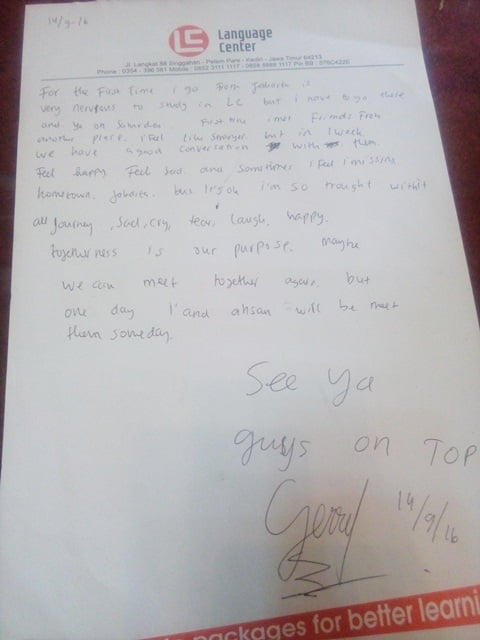 14/9-16
LC Language
Center
Jl. Langkat 88 Singgahan - Pelem Pare - Kediri - Jawa Timur 64213
Phone : 0354 - 396 581 Mobile : 0852 3111 1117 - 0858 5588 1117 Pin BB : 576C4226
For the First time i go From Jakarta is
very nervous to study in LC but i have to go there
and ya on Saturday. First time i met Friends From
another place. i Feel like stranger. but in 1 week
we have a good conversation with them.
Feel happy Feel sad. and sometimes i Feel i missing
hometown, Jakarta. but It's ok i'm so trought with it
all Journey, Sad, Cry, fear, laugh, happy.
togetherness is our purpose. maybe
we can meet together again. but
one day I and ahsan will be meet
them someday.
See Ya
guys on TOP
Gerry 14/9/16
packages for better learni